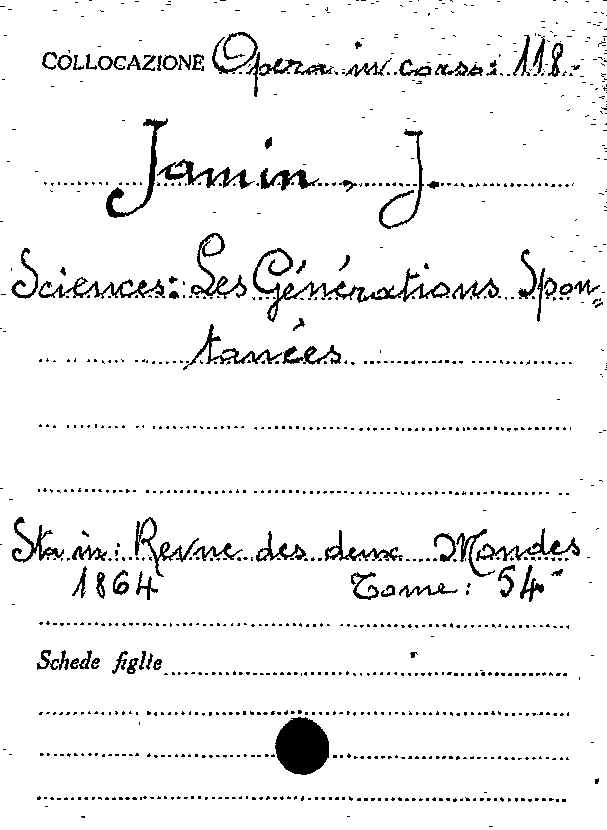 COLLOCAZIONE Opera in corso: 118.
Jamin, J.
Sciences: Les Générations Spon=
tanées
Sta in: Revue des deux Mondes
1864 Tome: 54
Schede figlie